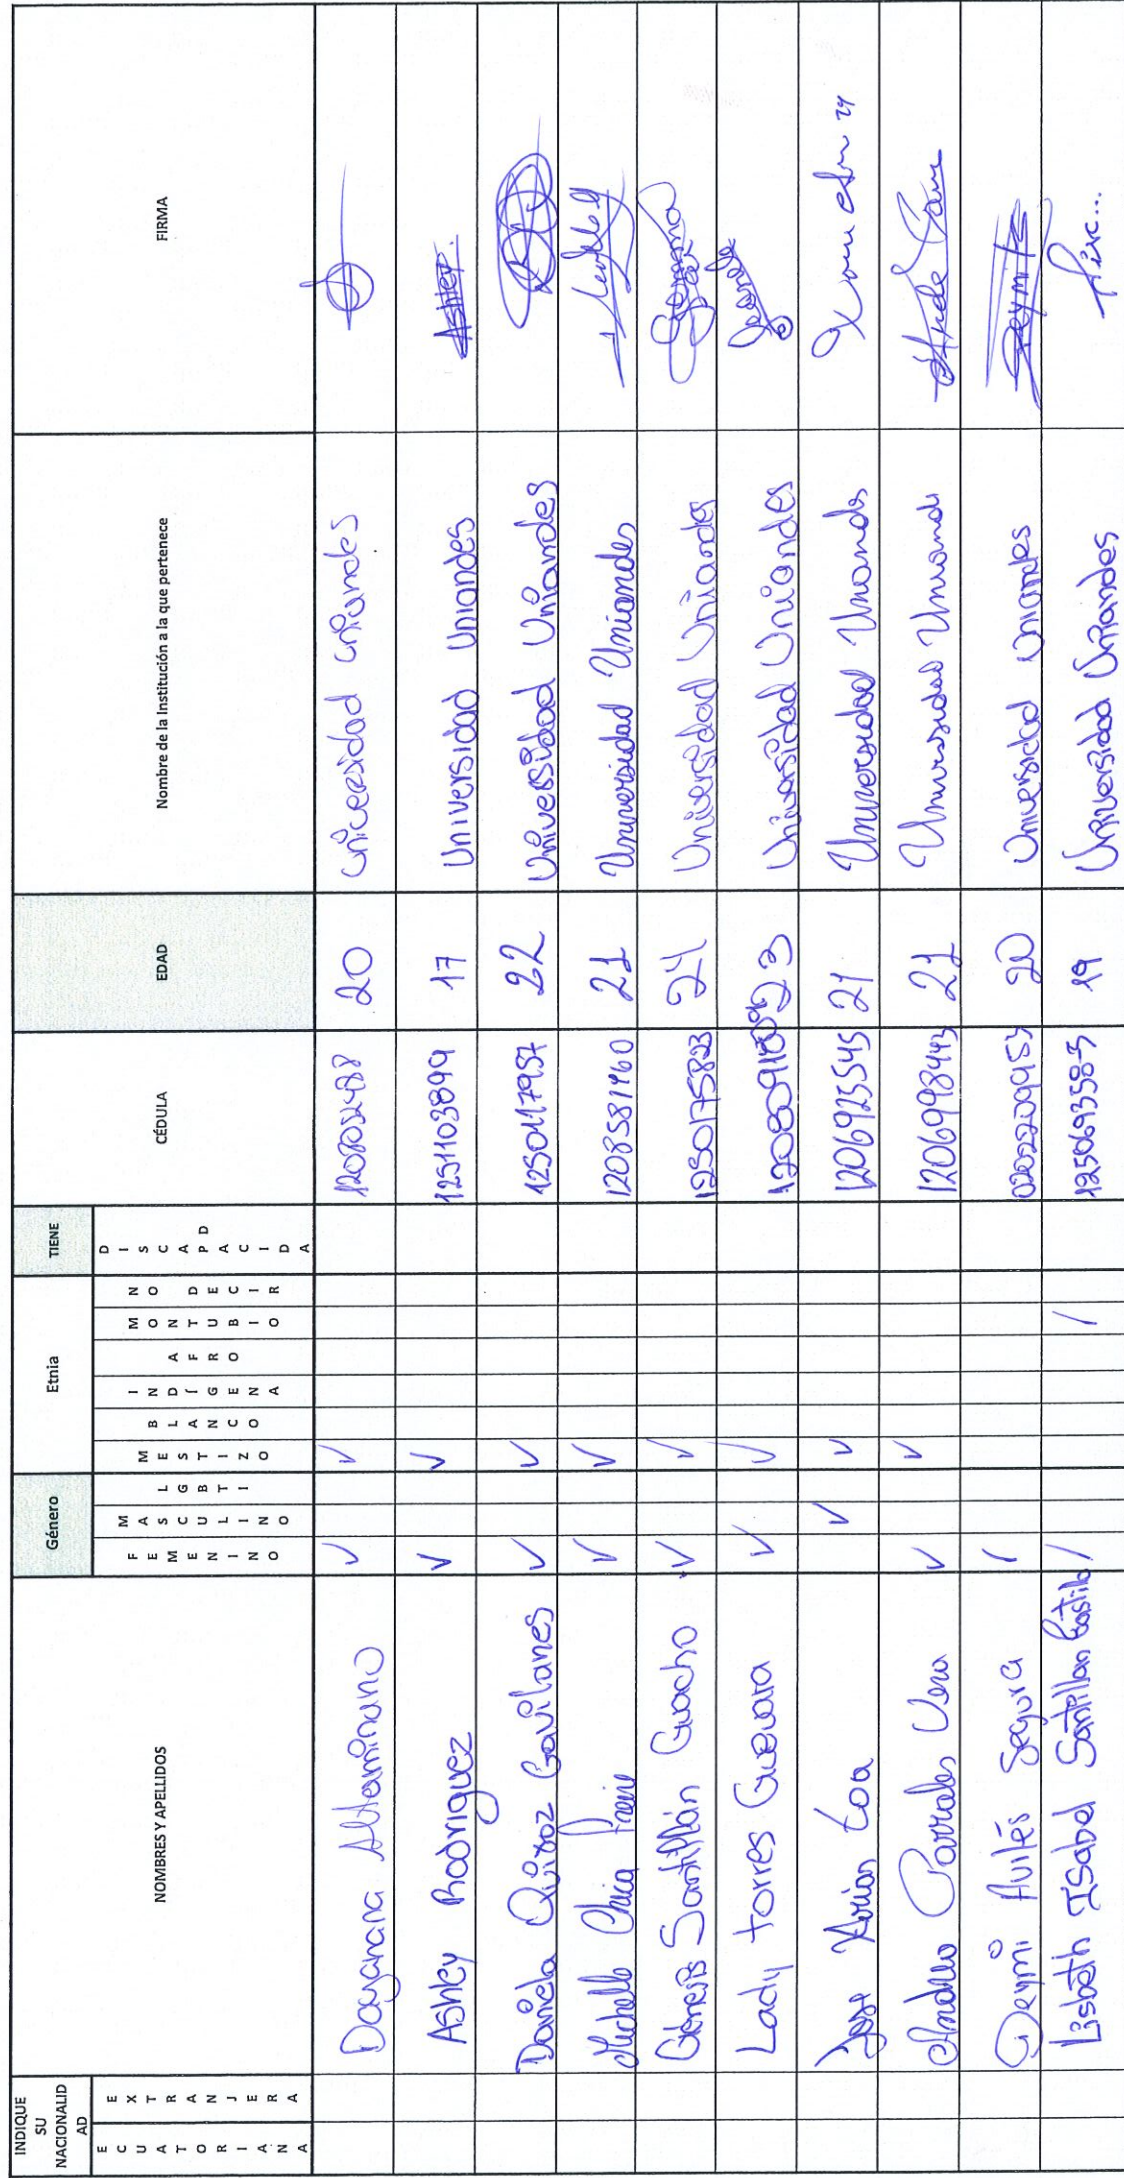 INDIQUE SU NACIONALIDAD
ECUATORIANA
EXTRANJERA
NOMBRES Y APELLIDOS
Género
FEMENINO
MASCULINO
LGBTI
Etnia
MESTIZO
BLANCO
INDÍGENA
AFRO
MONTUBIO
NO DECIR
TIENE
DISCAPACIDAD
CÉDULA
EDAD
Nombre de la Institución a la que pertenece
FIRMA
Dayanara Altamirano ✓ ✓ 20
Ashley Rodriguez ✓ ✓ 1251103899 17 Universidad Uniandes Ashley.
Daniela Quiroz Gavilanes ✓ ✓ 1250117957 22 Universidad Uniandes
Michelle Chica Freire ✓ ✓ 1208581460 21 Universidad Uniandes
Génesis Santillán Guacho ✓ ✓ 1250175823 24 Universidad Uniandes
Lady Torres Guevara ✓ ✓ 23 Universidad Uniandes
Jose ✓ ✓ 1206925545 21 Universidad
Parrales Vera ✓ ✓ 1206998443 21 Universidad
Deymi Avilés Segura / 0202209953 20 Universidad Uniandes
Lisbeth Isabel Santillan Castillo / / 125069358-5 19 Universidad Uniandes